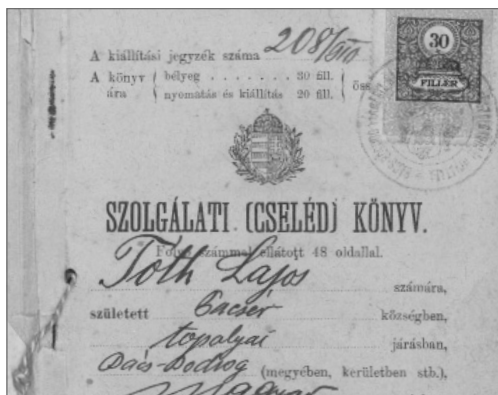 A kiállítási jegyzék száma 208/910
30
FILLÉR
A könyv ára { bélyeg . . . . . . . 30 fill.
nyomatás és kiállítás 20 fill. } öss
SZOLGÁLATI (CSELÉD) KÖNYV.
Folyó számmal ellátott 48 oldallal.
Tóth Lajos számára,
született Bacsér községben,
topolyai járásban,
Bács-Bodrog (megyében, kerületben stb.),
Magyar